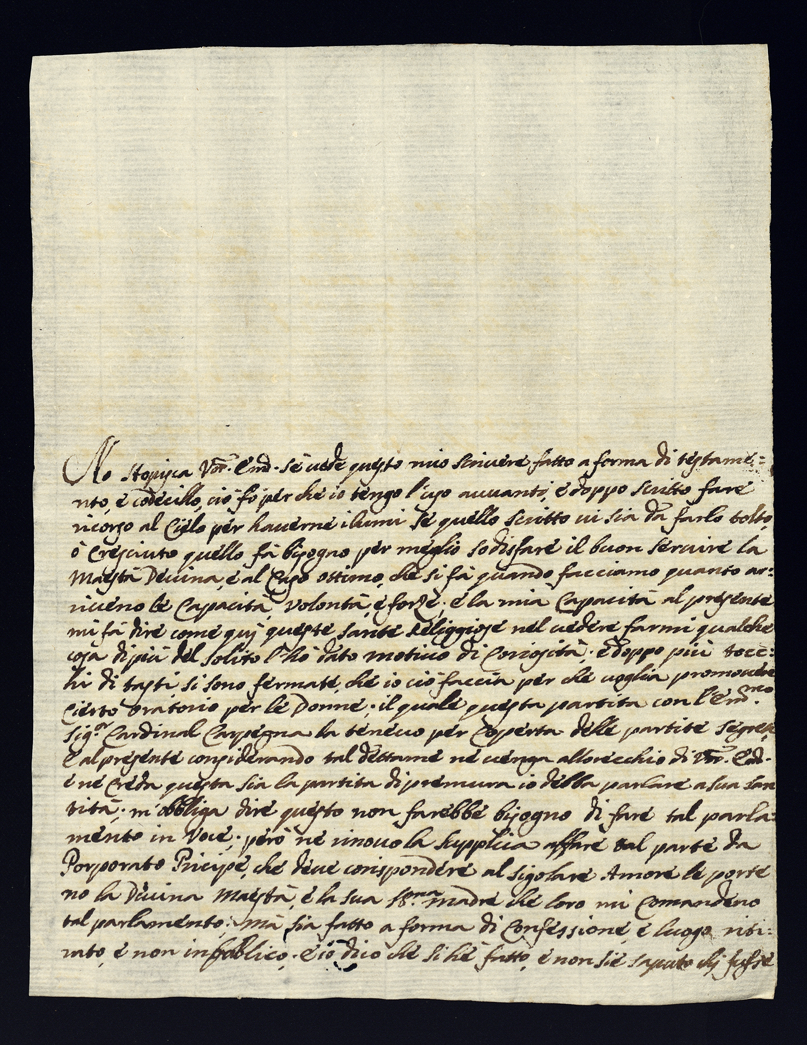 No stopisca Vor. Emd. se vede questo mio scrivere fatto a forma di testame=
nto, e codecillo, ciò fò per che io tengo l'uso avvanti, e doppo scritto fare
ricorso al Cielo per haverne ilumi se quello scritto vi sia da farlo tolto
ò Cresciuto quello fà bisogno per meglio sodisfare il buon servire la
Maestà Devina, e al Capo ottimo, che si fà quando facciamo quanto ar=
riveno le Capacità, volontà, e forze. e la mia Capacità al presente
mi fà dire come qui queste sante Religgiose nel vedere farmi qualche
cosa di più del solito l'hò dato motivo di Coriosità, e doppo più tocc=
hi di tasti, si sono fermate, che io ciò faccia per che voglia promovere
Cierto oratorio per le Donne, il quale questa partita con l'Em.mo
Sig.r Cardinal Carpegna la tenevo per Coperta delle partite segrete
E al presente considerando tal dettame ne venga all orecchio di Vor. Emd.
e ne Creda questa sia la partita di premura io della parlare a sua san
tità, m'obbliga dire questo non farebbe bisogno di fare tal parla=
mento in Voce, però ne rinovo la supplica affare tal parte da
Porporato Pricipe, che deve corispondere al sigolare Amore le porte
no la Divina Maestà, e la sua SS.ma madre che loro mi Comandeno
tal parlamento: mà sia fatto a forma di Confessione, e luogo riti=
rato, e non in pubblico, e io dico che si hè fatto, e non si è saputo chi fusse